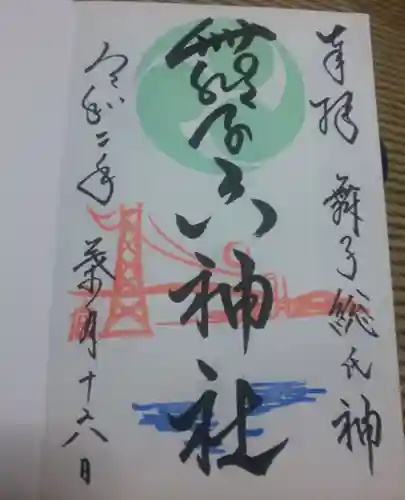 奉拝 舞子総氏神
舞子六神社
令和二年 葉月十六日